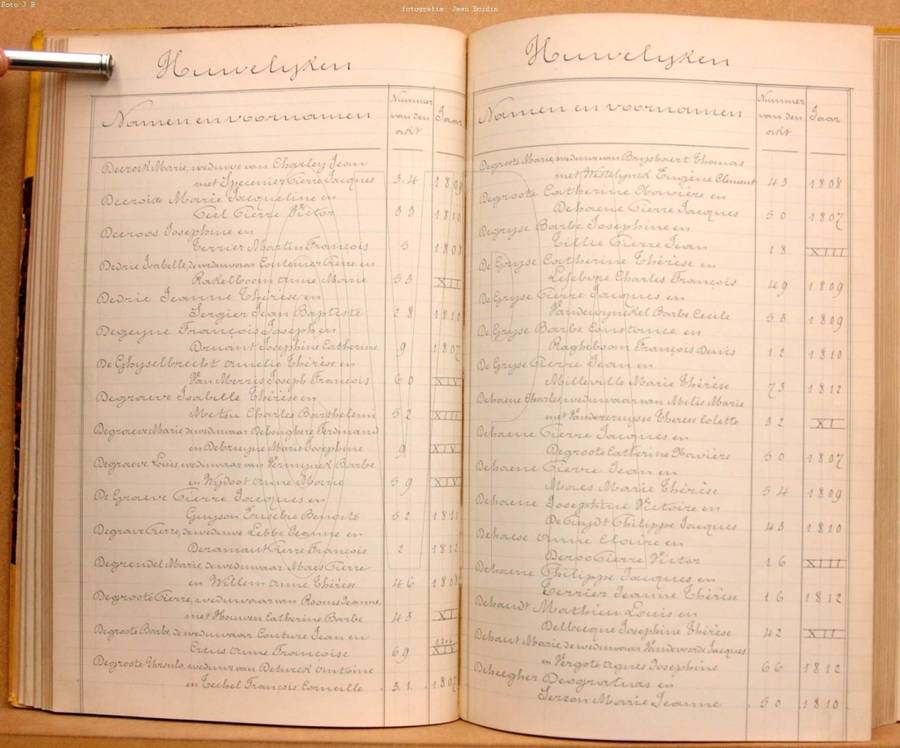 Foto J B
fotografie: Jean Bordin
Huwelijken
Namen en voornamen
Nummer van den akt
Jaar
Decrock Marie, weduwe van Charley Jean
met Specenier Pierre Jacques 34
Decroix Marie Jacqueline en
Ciel Pierre Victor 33 1810
Decroos Josephine en
Terrier Martin François 5 1808
Dedrie Isabelle, weduwe van Coutenier Pierre en
Rakelboom Anne Marie 53 XII
Dedrie Jeanne Thérèse en
Sergier Jean Baptiste 28 1810
Degeyne François Joseph en
Druant Josephine Catherine 9 1807
De Ghyselbrecht Amelie Thérèse en
Van Merris Joseph François 60 XIV
Degraeve Isabelle Thérèse en
Metsu Charles Barthelemie 52 XIII
Degraeve Marie de weduwaar Ferdinand
en Debruyne Marie Josephine 9 XIV
Degraeve Louis, weduwaar van Vermynck Barbe
en Wydoot Anne Marie 59 XIV
De Graeve Pierre Jacques en
Guyson Eusebie Benoite 52 1811
Degrave Pierre, de weduwe Lebbe Jeanne en
Deramaut Pierre François 2 1812
Degrendel Marie, de weduwaar Maes Pierre
en Willem Anne Thérèse 46
Degroote Pierre, weduwaar van Rooms Jeanne
met Houwen Catherine Barbe 43 XI
Degroote Barbe, de weduwaar Couture Jean en
Creus Anne Françoise 69 XIV
Degroote Ursula, weduwe van Antoine
en Techel Francois Corneille 31
Huwelijken
Namen en voornamen
Nummer van den akt
Jaar
Degroote Marie, weduwe van Buysbaert Thomas
met Westelynck Eugène Clement 43 1808
Degroote Catherine Xavière en
Dehaene Pierre Jacques 50 1807
Degryse Barbe Josephine en
Tillie Pierre Jean 18 XIII
De Gryse Catherine Thérèse en
Lefebvre Charles François 49 1809
De Gryse Pierre Jacques en
Vandewynckel Barbe Cecile 33 1809
De Gryse Barbe Constance en
Ragheboom François Denis 12 1810
De Gryse Pierre Jean en
Milleville Marie Thérèse 73 1812
Dehaene Charles, weduwaar van Melis Marie
met Vandercruysse Therese Colette 32 XI
Dehaene Pierre Jacques en
Degroote Catherine Xavière 50 1807
Dehaene Pierre Jean en
Maes Marie Thérèse 54 1809
Dehaene Josephine Victoire en
De Cuydt Philippe Jacques 43 1810
Dehaese Anne Claire en
Deroo Pierre Victor 16 XIII
Dehaene Philippe Jacques en
Terrier Jeanne Thérèse 16 1812
Dehandt Mathieu Louis en
Delbecque Josephine Thérèse 42 XII
Dehaut Marie, de weduwaar Vandevoorde Jacques
en Vergote Agnes Josephine 66 1812
Deheegher Desgratias en
Terzon Marie Jeanne 50 1810